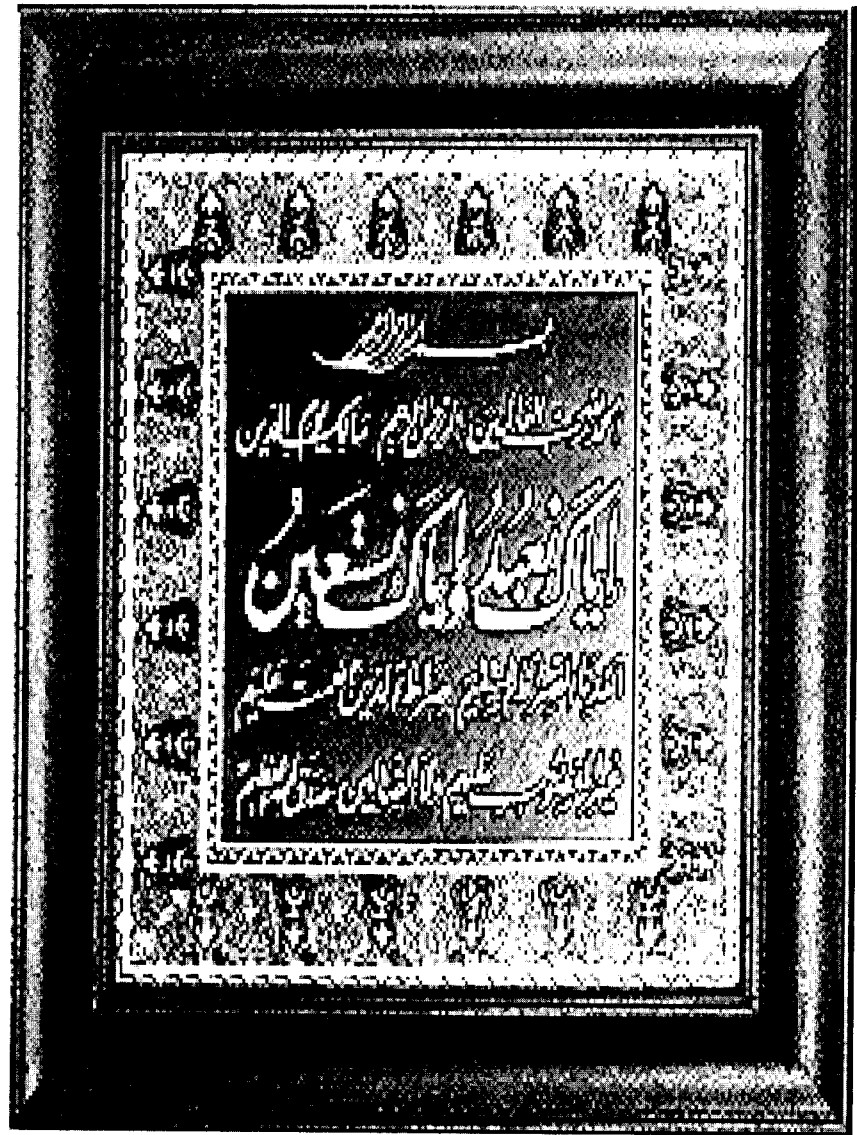 بسم الله الرحمن الرحیم
الحمد لله رب العالمین الرحمن الرحیم مالک یوم الدین
ایاک نعبد و ایاک نستعین
اهدنا الصراط المستقیم صراط الذین انعمت علیهم
غیر المغضوب علیهم ولا الضالین صدق الله العظیم